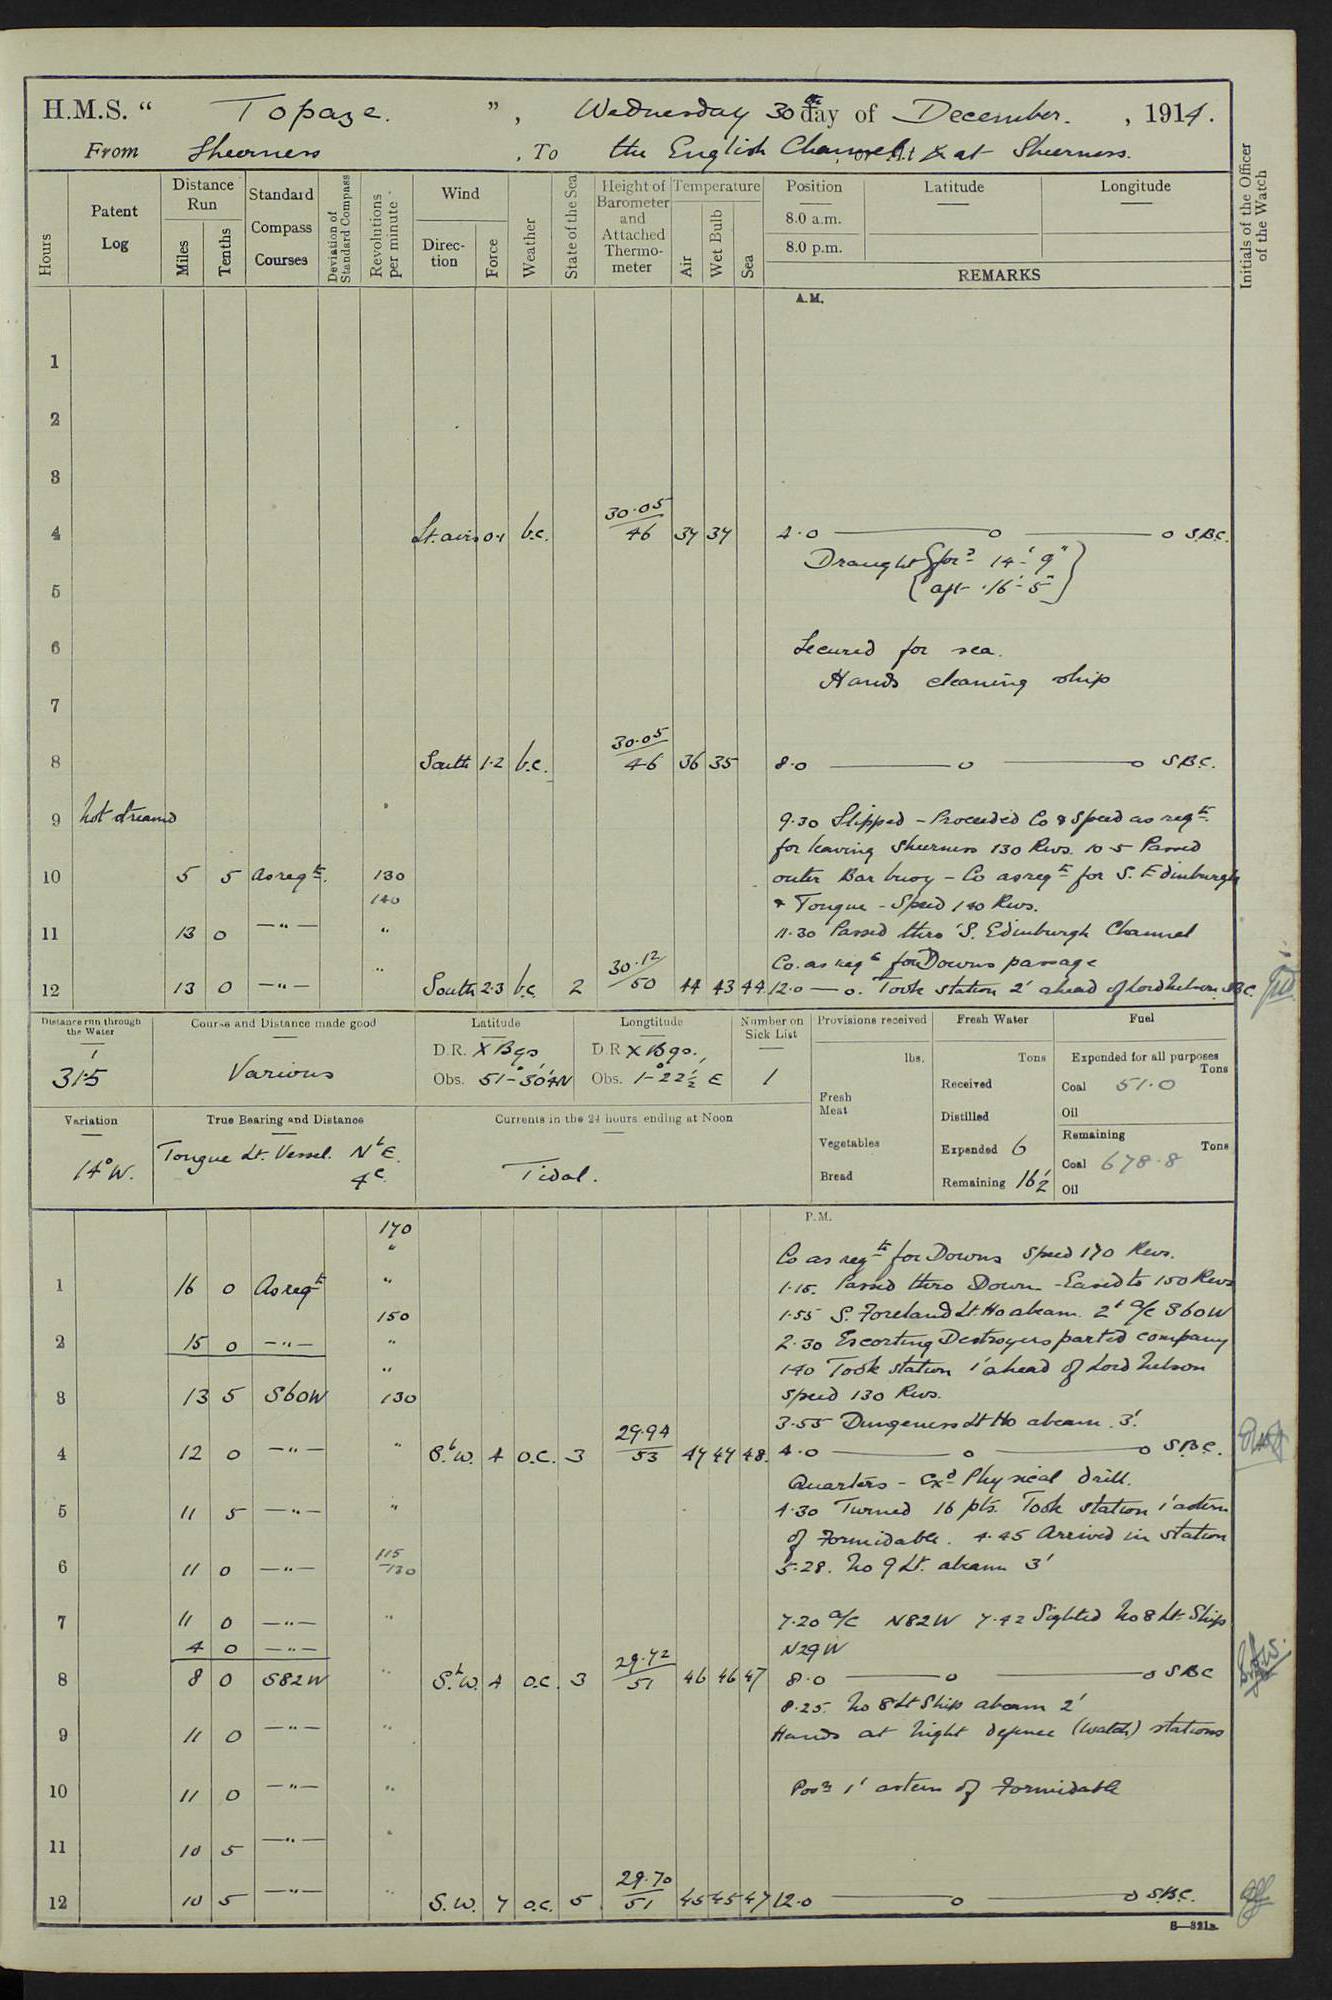 H.M.S. “ Topaze. ”, Wednesday 30th day of December. , 1914.
From Sheerness , To the English Channel & at Sheerness.
Hours
Patent Log
Distance Run
Miles
Tenths
Standard Compass Courses
Deviation of Standard Compass
Revolutions per minute
Wind
Direction
Force
Weather
State of the Sea
Height of Barometer and Attached Thermometer
Temperature
Air
Wet Bulb
Sea
Position
8.0 a.m.
8.0 p.m.
Latitude
Longitude
REMARKS
Initials of the Officer of the Watch
A.M.
1
2
3
4 Lt. airs 0·1 b.c. 30·05 / 46 37 37 4·0 — o — o S.B.C.
Draught { for'd 14'- 9" }
{ aft 16'- 5" }
5
6 Secured for sea.
Hands cleaning ship
7
8 South 1·2 b.c. 30·05 / 46 36 35 8·0 — o — o S.B.C.
9 Not streamed 9·30 Slipped – Proceeded Co & Speed as reqte
for leaving Sheerness 130 Revs. 10·5 Passed
10 5 5 As reqte. 130 outer Bar buoy – Co as reqte for S. Edinburgh
140 & Tongue – Speed 140 Revs.
11 13 0 — " — " 11·30 Passed thro' S. Edinburgh Channel
" Co. as reqte for Downs passage
12 13 0 — " — South 2·3 b.c. 2 30·12 / 50 44 43 44 12·0 — o. Took station 2' ahead of Lord Nelson SBC.
Distance run through the Water
31·5
Course and Distance made good
Various
Latitude
D.R. X Bgs
Obs. 51°-30'4N
Longtitude
D R X Bgs.
Obs. 1°-22'½ E
Number on Sick List
1
Provisions received
lbs.
Fresh Meat
Vegetables
Bread
Fresh Water
Tons
Received
Distilled
Expended 6
Remaining 16½
Fuel
Expended for all purposes
Tons
Coal 51·0
Oil
Remaining
Tons
Coal 678·8
Oil
Variation
14° W.
True Bearing and Distance
Tongue Lt. Vessel. NbE.
4c
Currents in the 24 hours ending at Noon
Tidal.
P.M.
170
" Co as reqte for Downs Speed 170 Revs.
1 16 0 As reqte " 1·15. Passed thro Down – Eased to 150 Revs
150 1·55 S. Foreland Lt. Ho abeam. 2' a/c S60W
2 15 0 — " — " 2·30 Escorting Destroyers parted company
" 1·40 Took station 1' ahead of Lord Nelson
3 13 5 S60W 130 Speed 130 Revs.
3·55 Dungeness Lt Ho abeam. 3'.
4 12 0 — " — " SbW. 4 O.C. 3 29·94 / 53 47 47 48. 4·0 — o — o S.B.C.
Quarters – Exd Physical drill.
5 11 5 — " — " 4·30 Turned 16 pts. Took station 1' astern
of Formidable. 4·45 Arrived in station
6 11 0 — " — 115 / 130 5·28. No 9 Lt. abeam 3'
7 11 0 — " — " 7·20 a/c N82W 7·42 Sighted No 8 Lt Ship
4 0 — " — N29W
8 8 0 S82W " SbW. 4 O.C. 3 29·72 / 51 46 46 47 8·0 — o — o SBC
8·25. No 8 Lt Ship abeam 2'
9 11 0 — " — " Hands at night defence (watch) stations
10 11 0 — " — " Posn 1' astern of Formidable
11 10 5 — " — "
12 10 5 — " — " S.W. 7 O.C. 5 29·70 / 51 45 45 47 12·0 — o — o S.B.C.
S—321a.